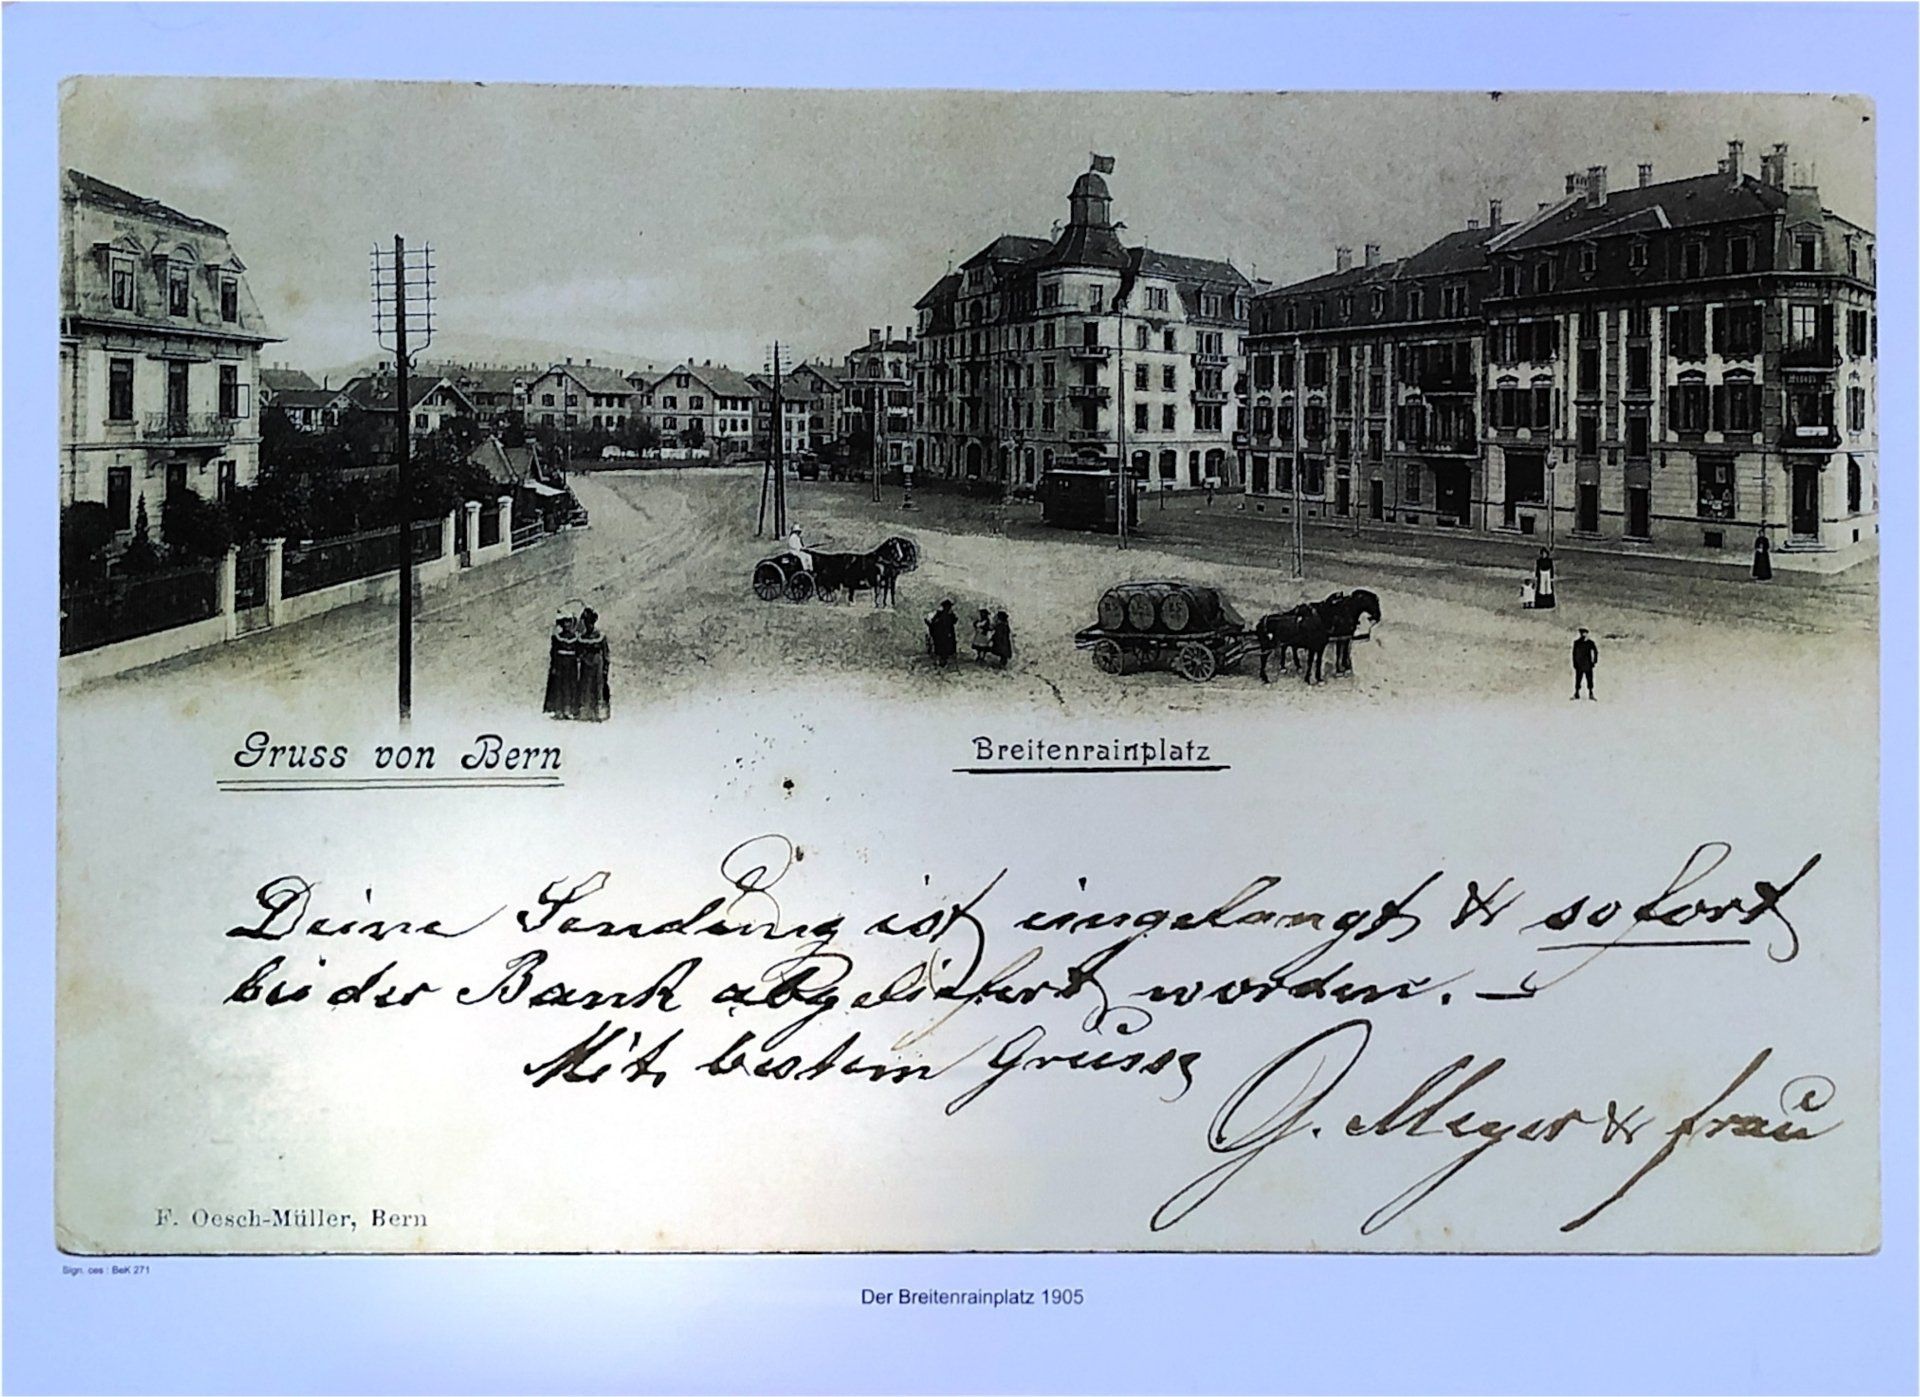 Gruss von Bern
Breitenrainplatz
Deine Sendung ist eingelangt & sofort
bei der Bank abgeliefert worden. —
Mit bestem Gruss
G. Meyer & Frau
F. Oesch-Müller, Bern
Sign. ces : BeK 271
Der Breitenrainplatz 1905